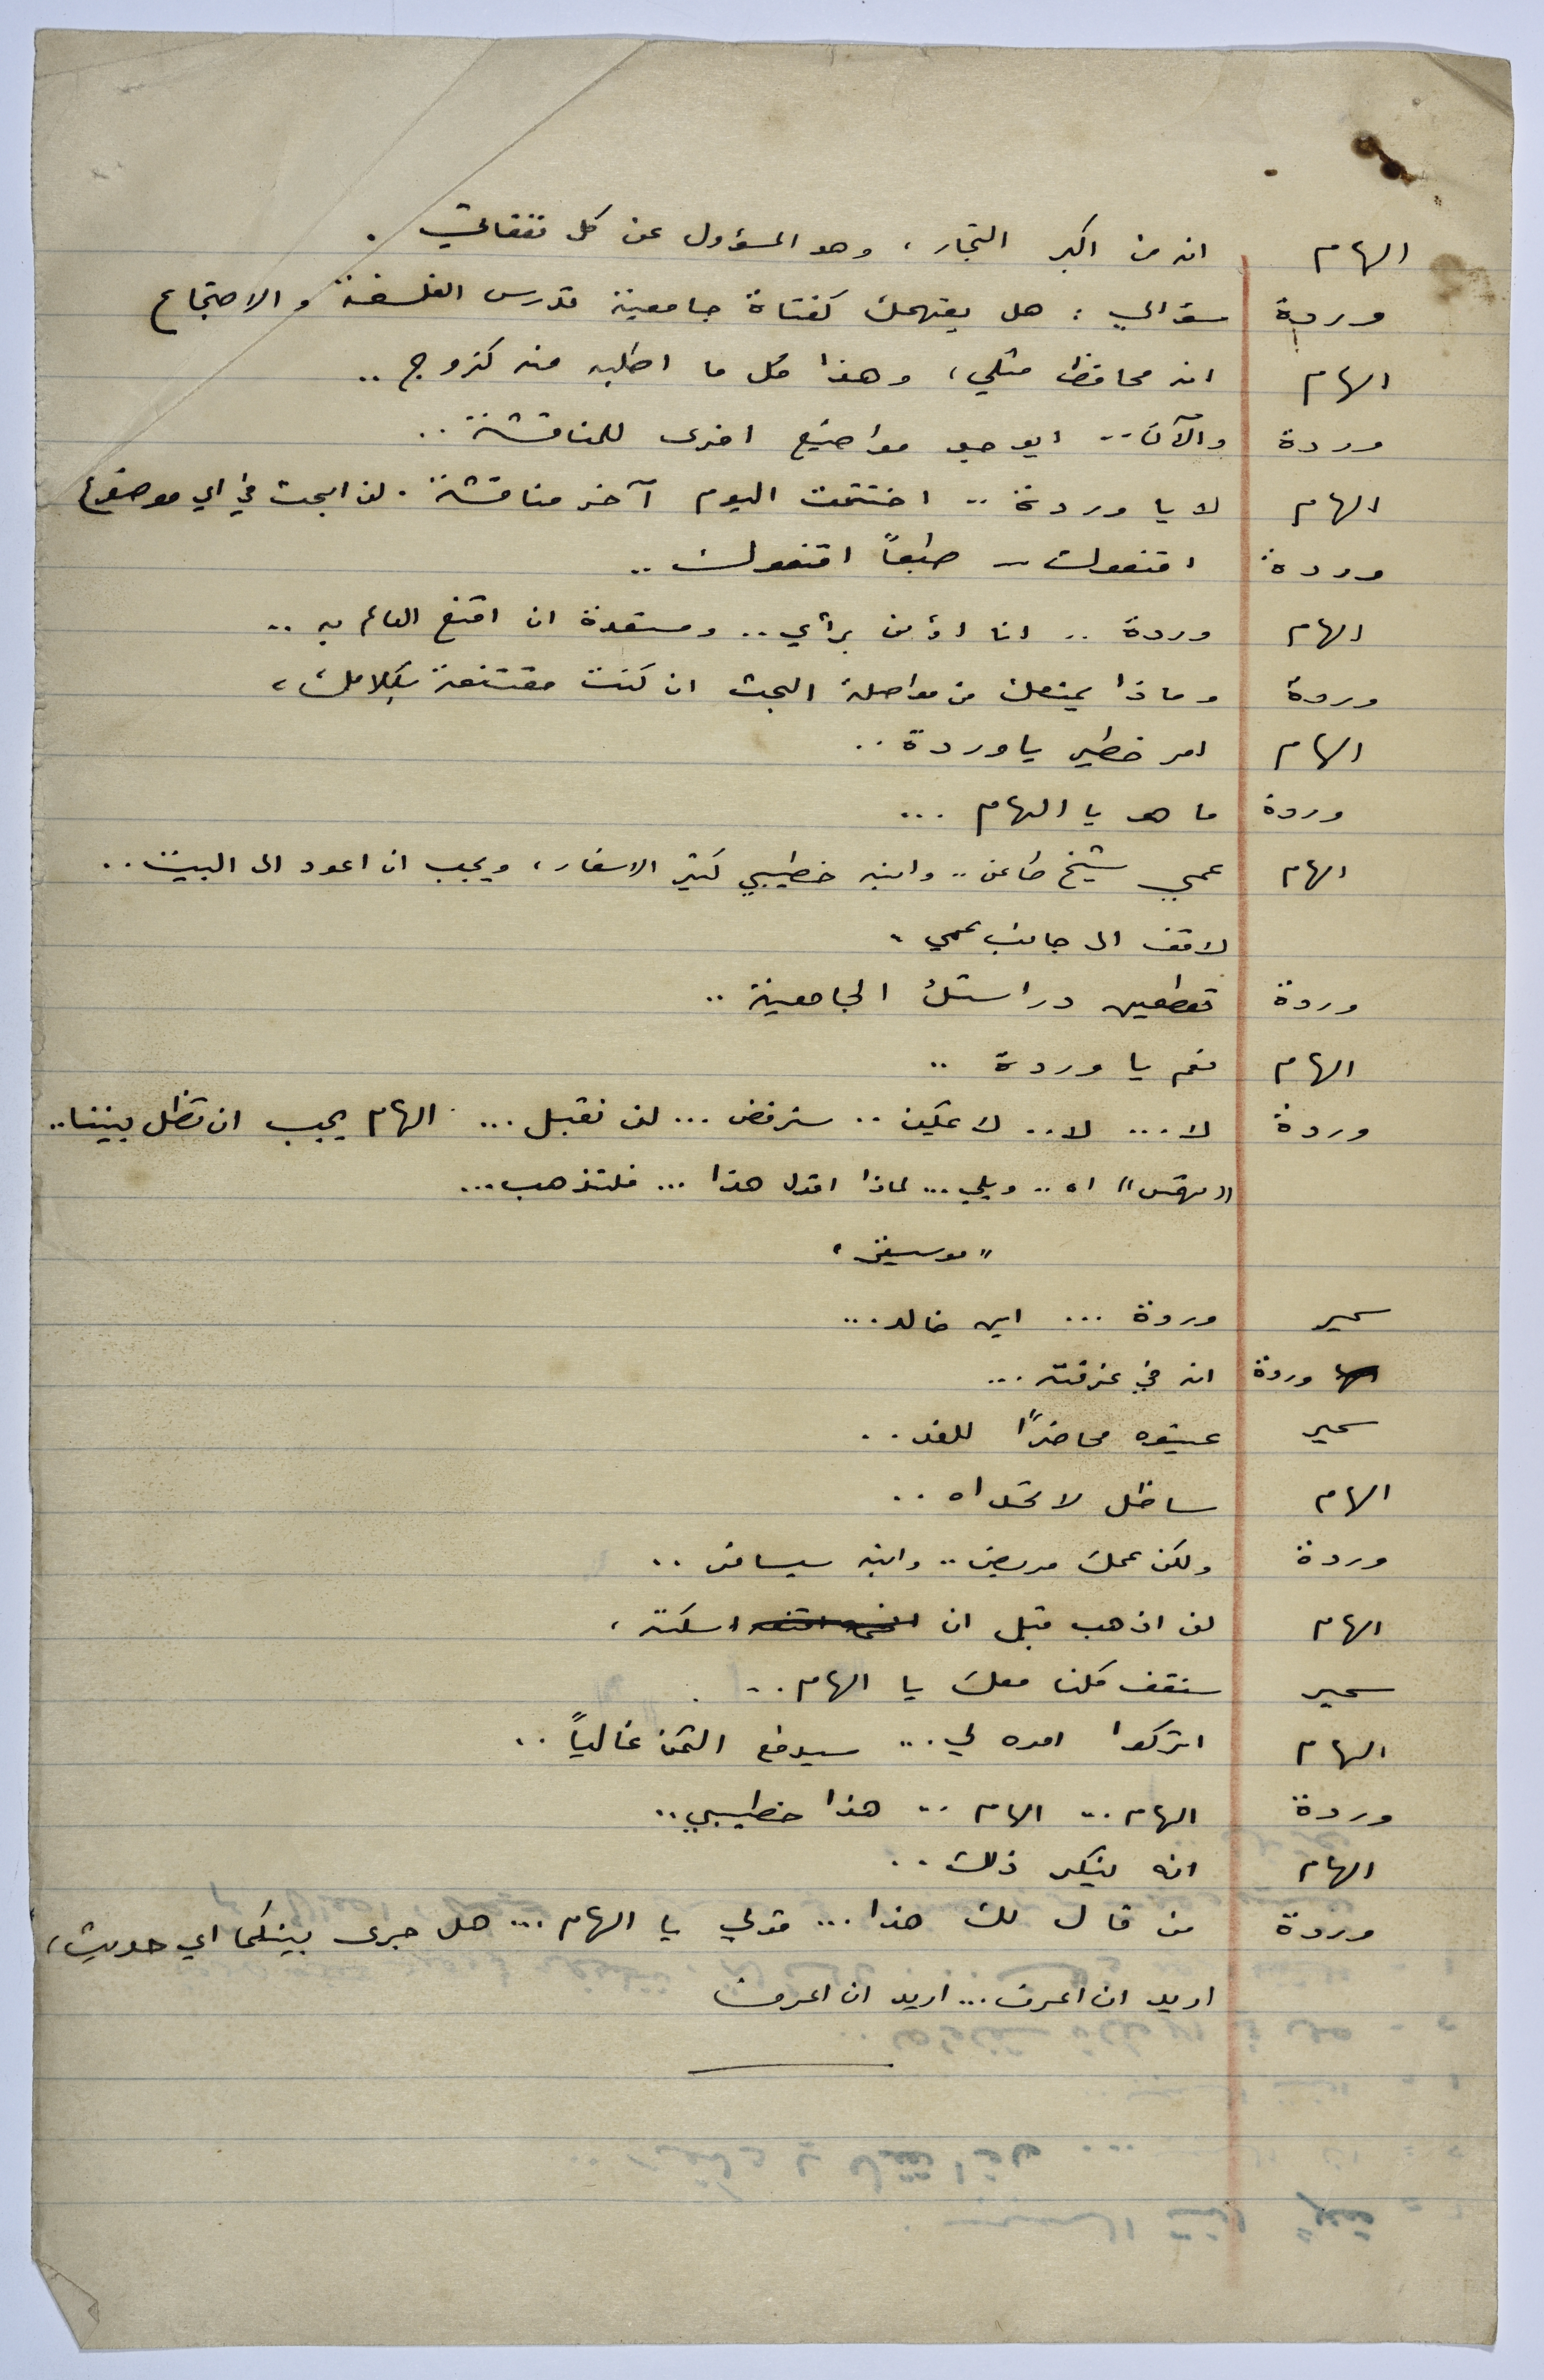 الهام انه من اكبر التجار، وهو المسؤول عن كل نفقاتي.
وردة سؤالي: هل يفهمك كفتاة جامعية تدرس الفلسفة والاجتماع
الهام انه محافظ مثلي، وهذا كل ما اطلبه منه كزوج..
وردة والآن.. ايوجد مواضيع اخرى للمناقشة..
الهام لا يا وردة.. اختتمت اليوم آخر مناقشة. لن ابحث في اي موضوع
وردة اقنعوك.. طبعاً اقنعوك..
الهام وردة.. انا اؤمن برأيي.. ومستعدة ان اقنع العالم به..
وردة وماذا يمنعك من مواصلة البحث ان كنت مقتنعة بكلامك،
الهام امر خطير يا وردة..
وردة ما هو يا الهام...
الهام عمي شيخ طاعن.. وابنه خطيبي كثير الاسفار، ويجب ان اعود الى البيت..
لاقف الى جانب عمي.
وردة تقطعين دراستك الجامعية..
الهام نعم يا وردة..
وردة لا... لا.. لا يمكن.. سنرفض... لن نقبل... الهام يجب ان تظل بيننا..
"تهمس" اه.. ويلي... لماذا اقول هذا... فلتذهب...
"موسيقى"
سمير وردة... اين خالد...
وردة انه في غرفته...
سمير عينوه محاضراً للغد..
الهام ساظل لاتحداه..
وردة ولكن عمك مريض.. وابنه سيسافر..
الهام لن اذهب قبل ان اسكته،
سمير سنقف كلنا معك يا الهام..
الهام اتركوا امره لي... سيدفع الثمن غالياً..
وردة الهام.. الهام.. هذا خطيبي..
الهام انه ينكر ذلك..
وردة من قال لك هذا... قولي يا الهام... هل جرى بينكما اي حديث،
اريد ان اعرف... اريد ان اعرف